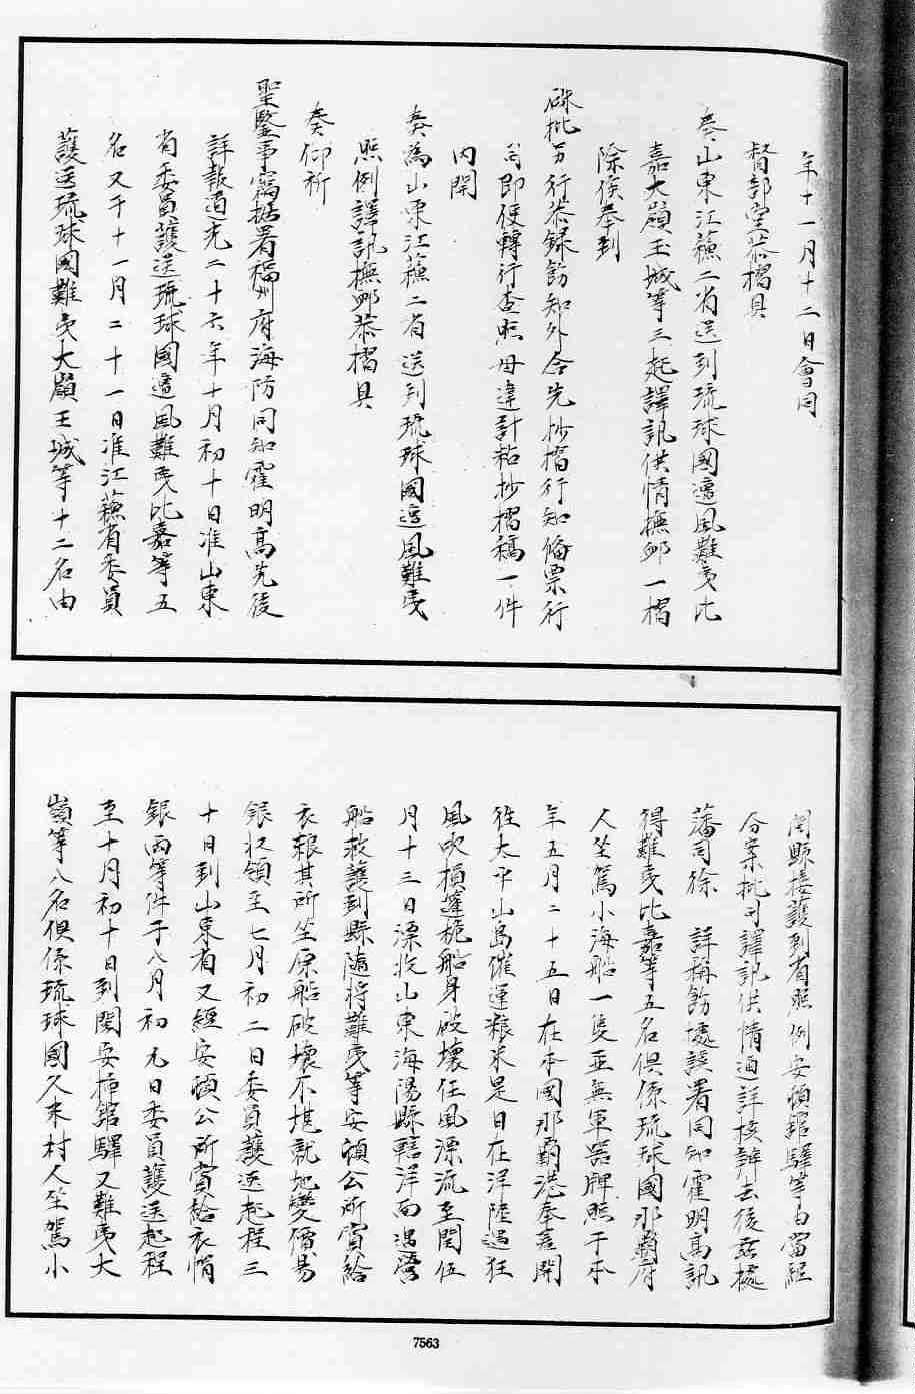 年十一月十二日會同
督部堂恭摺具
奏山東江蘇二省送到琉球國遭風難夷比
嘉大嶺玉城等三起譯訊供情撫卹一摺
除俟奉到
硃批另行恭錄飭知外合先抄摺行知備票行
司即便轉行查照毋違計粘抄摺稿一件
內開
奏為山東江蘇二省送到琉球國遭風難夷
照例譯訊撫卹恭摺具
奏仰祈
聖鑒事竊據署福州府海防同知霍明高先後
詳報道光二十六年十月初十日准山東
省委員護送琉球國遭風難夷比嘉等五
名又于十一月二十一日准江蘇省委員
護送琉球國難夷大嶺玉城等十二名由
閩縣接護到省照例安頓館驛等由當經
分案批司譯訊供情通詳核辦去後茲據
藩司徐 詳稱飭據該署同知霍明高訊
得難夷比嘉等五名俱係琉球國那霸府
人坐駕小海船一隻並無軍器牌照于本
年五月二十五日在本國那霸港奉差開
往太平山島催運粮米是日在洋陸遇狂
風吹損篷桅船身破壞任風漂流至閏伍
月十三日漂收山東海陽縣轄洋面遇營
船救護到縣隨將難夷等安頓公所賞給
衣糧其所坐原船破壞不堪就地變價易
銀收領至七月初二日委員護送起程三
十日到山東省又經安頓公所賞給衣帽
銀兩等件于八月初九日委員護送起程
至十月初十日到閩安插館驛又難夷大
嶺等八名俱係琉球國久米村人坐駕小
7563